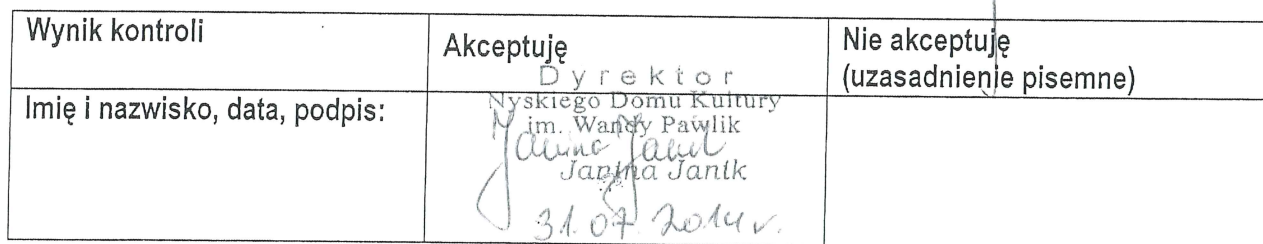 Wynik kontroli
Akceptuję
Nie akceptuję
(uzasadnienie pisemne)
Imię i nazwisko, data, podpis:
Dyrektor
Nyskiego Domu Kultury
im. Wandy Pawlik
Janina Janik
Janina Janik
31.07.2014 r.